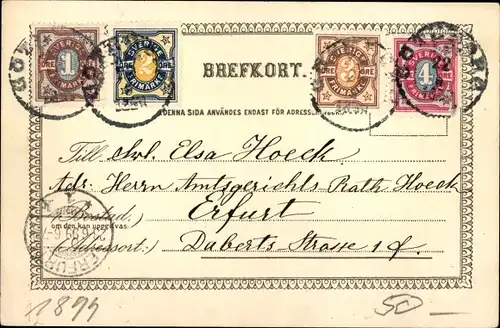 SVERIGE
1
ÖRE ÖRE
FRIMÄRKE
SVERIGE
2
ÖRE ÖRE
FRIMÄRKE
SVERIGE
3
ÖRE ÖRE
FRIMÄRKE
4
BREFKORT.
DENNA SIDA ANVÄNDES ENDAST FÖR ADRESS
Till Frl. Elsa Hoeck
Adr. Herrn Amtsgerichts Rath Hoeck
(Bostad.) Erfurt
om den kan uppgifvas
(Adressort.) Daberts Strasse
ERFURT
1899
50